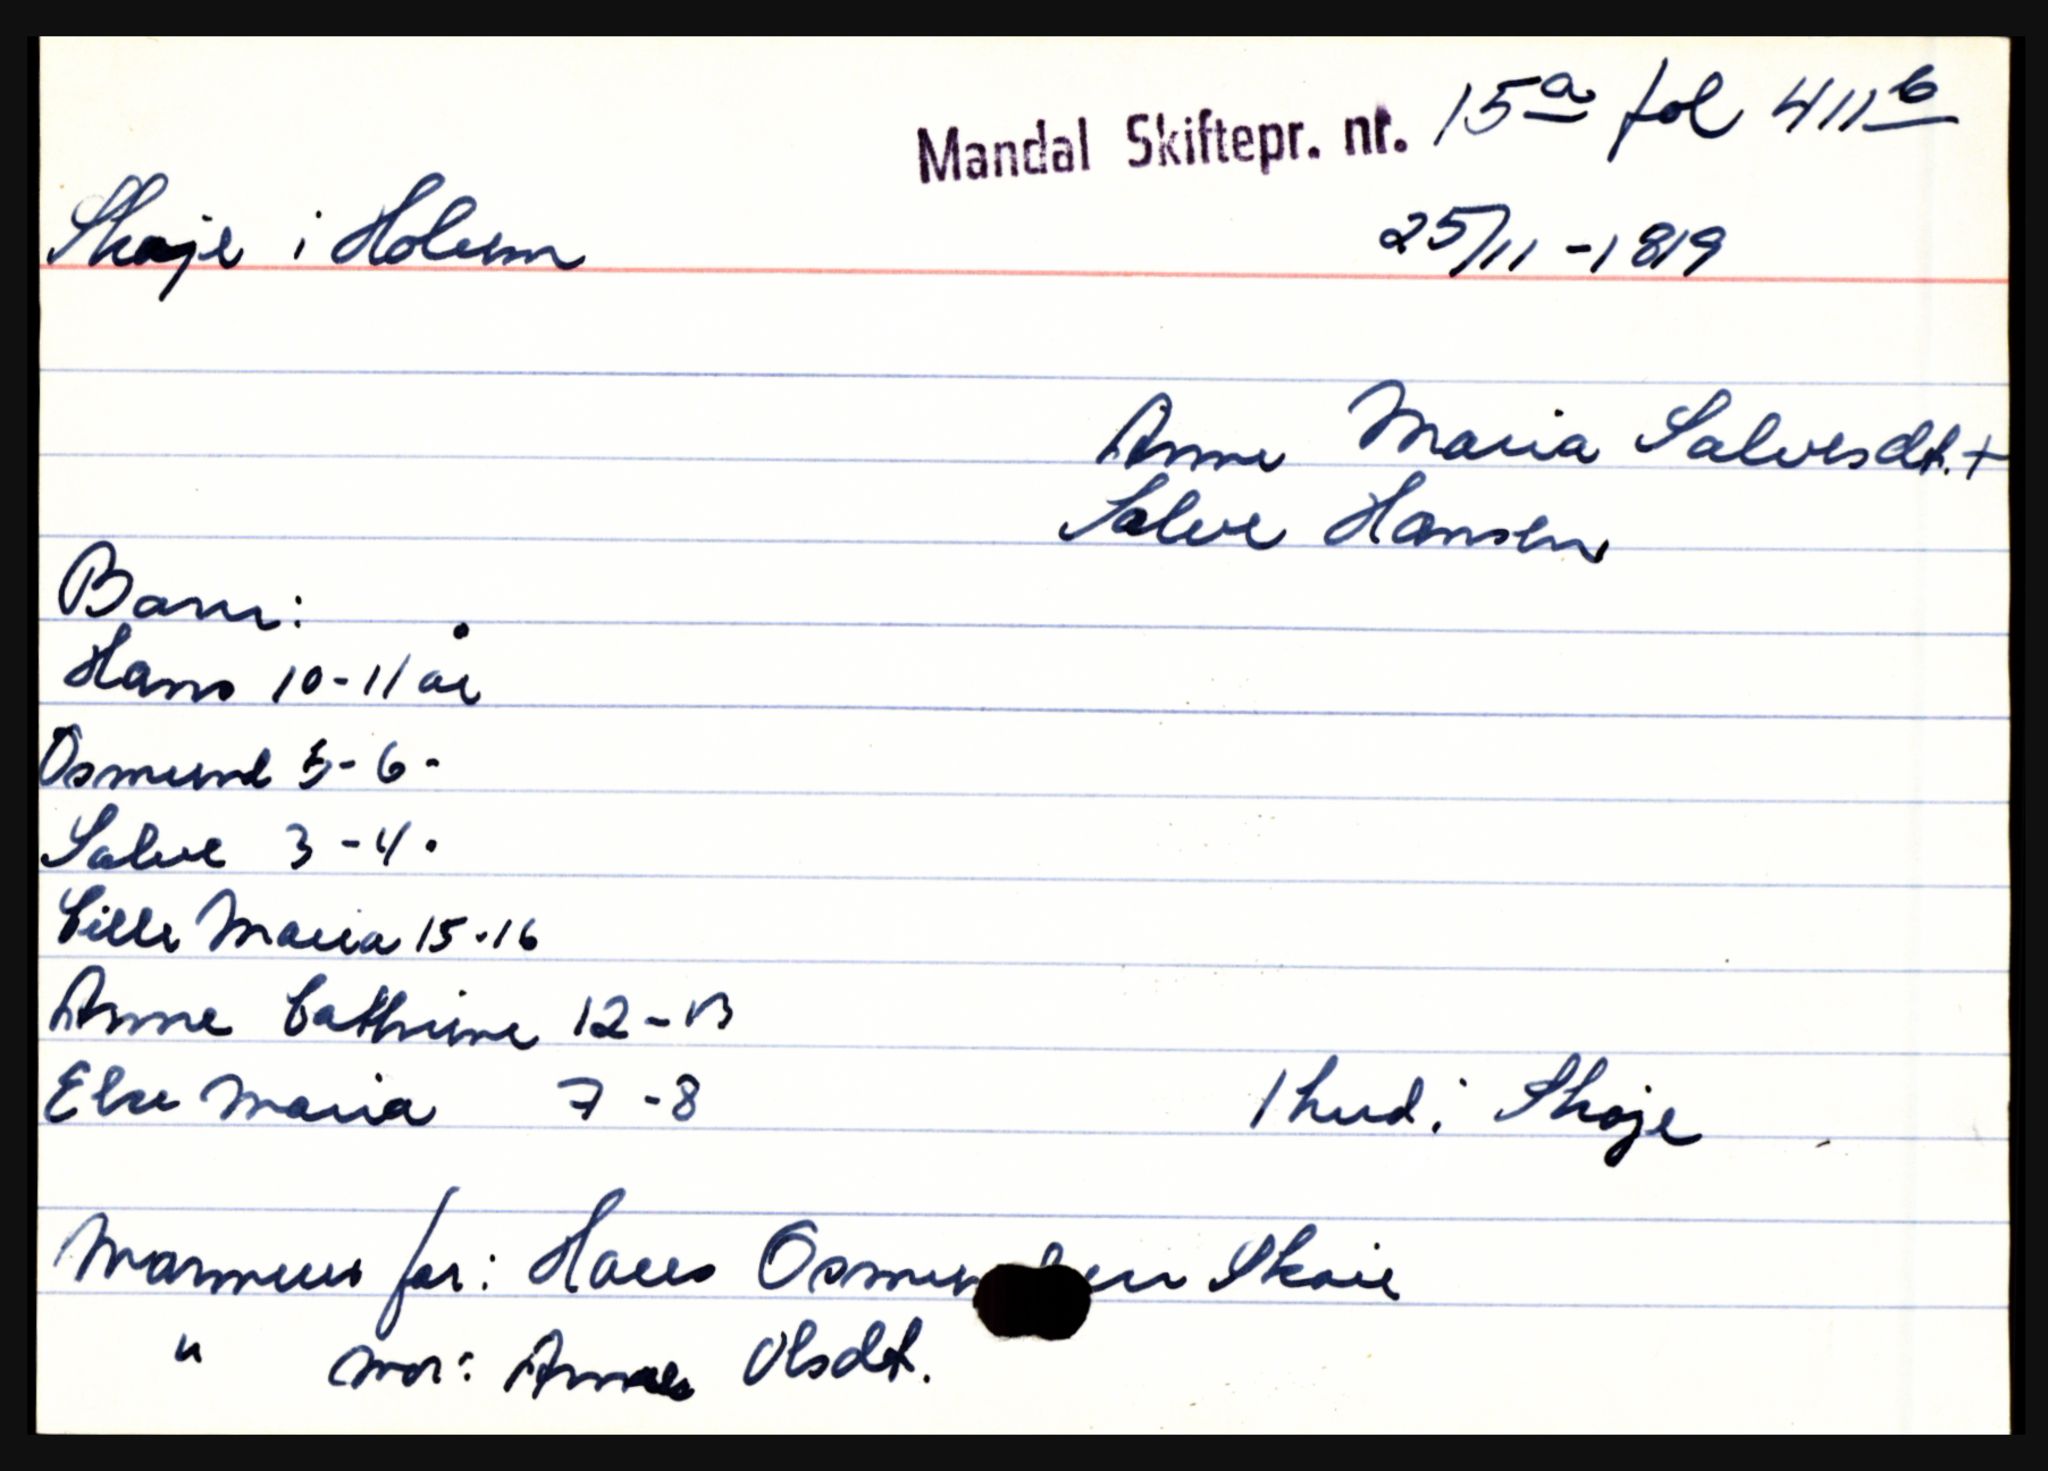 Mandal Skiftepr. nr. 15a fol 411b
Skoje i Holum 25/11-1819
Anne Maria Salvesdt. +
Salve Hansen
Barn:
Hans 10-11 år
Osmund 5-6-
Salve 3-4.
Cille Maria 15-16
Anne Cathrine 12-13
Else Maria 7-8
1 hud i Skoje
Mannens far: Hans Osmundsen Skoie
" mor: Anne Olsdt.